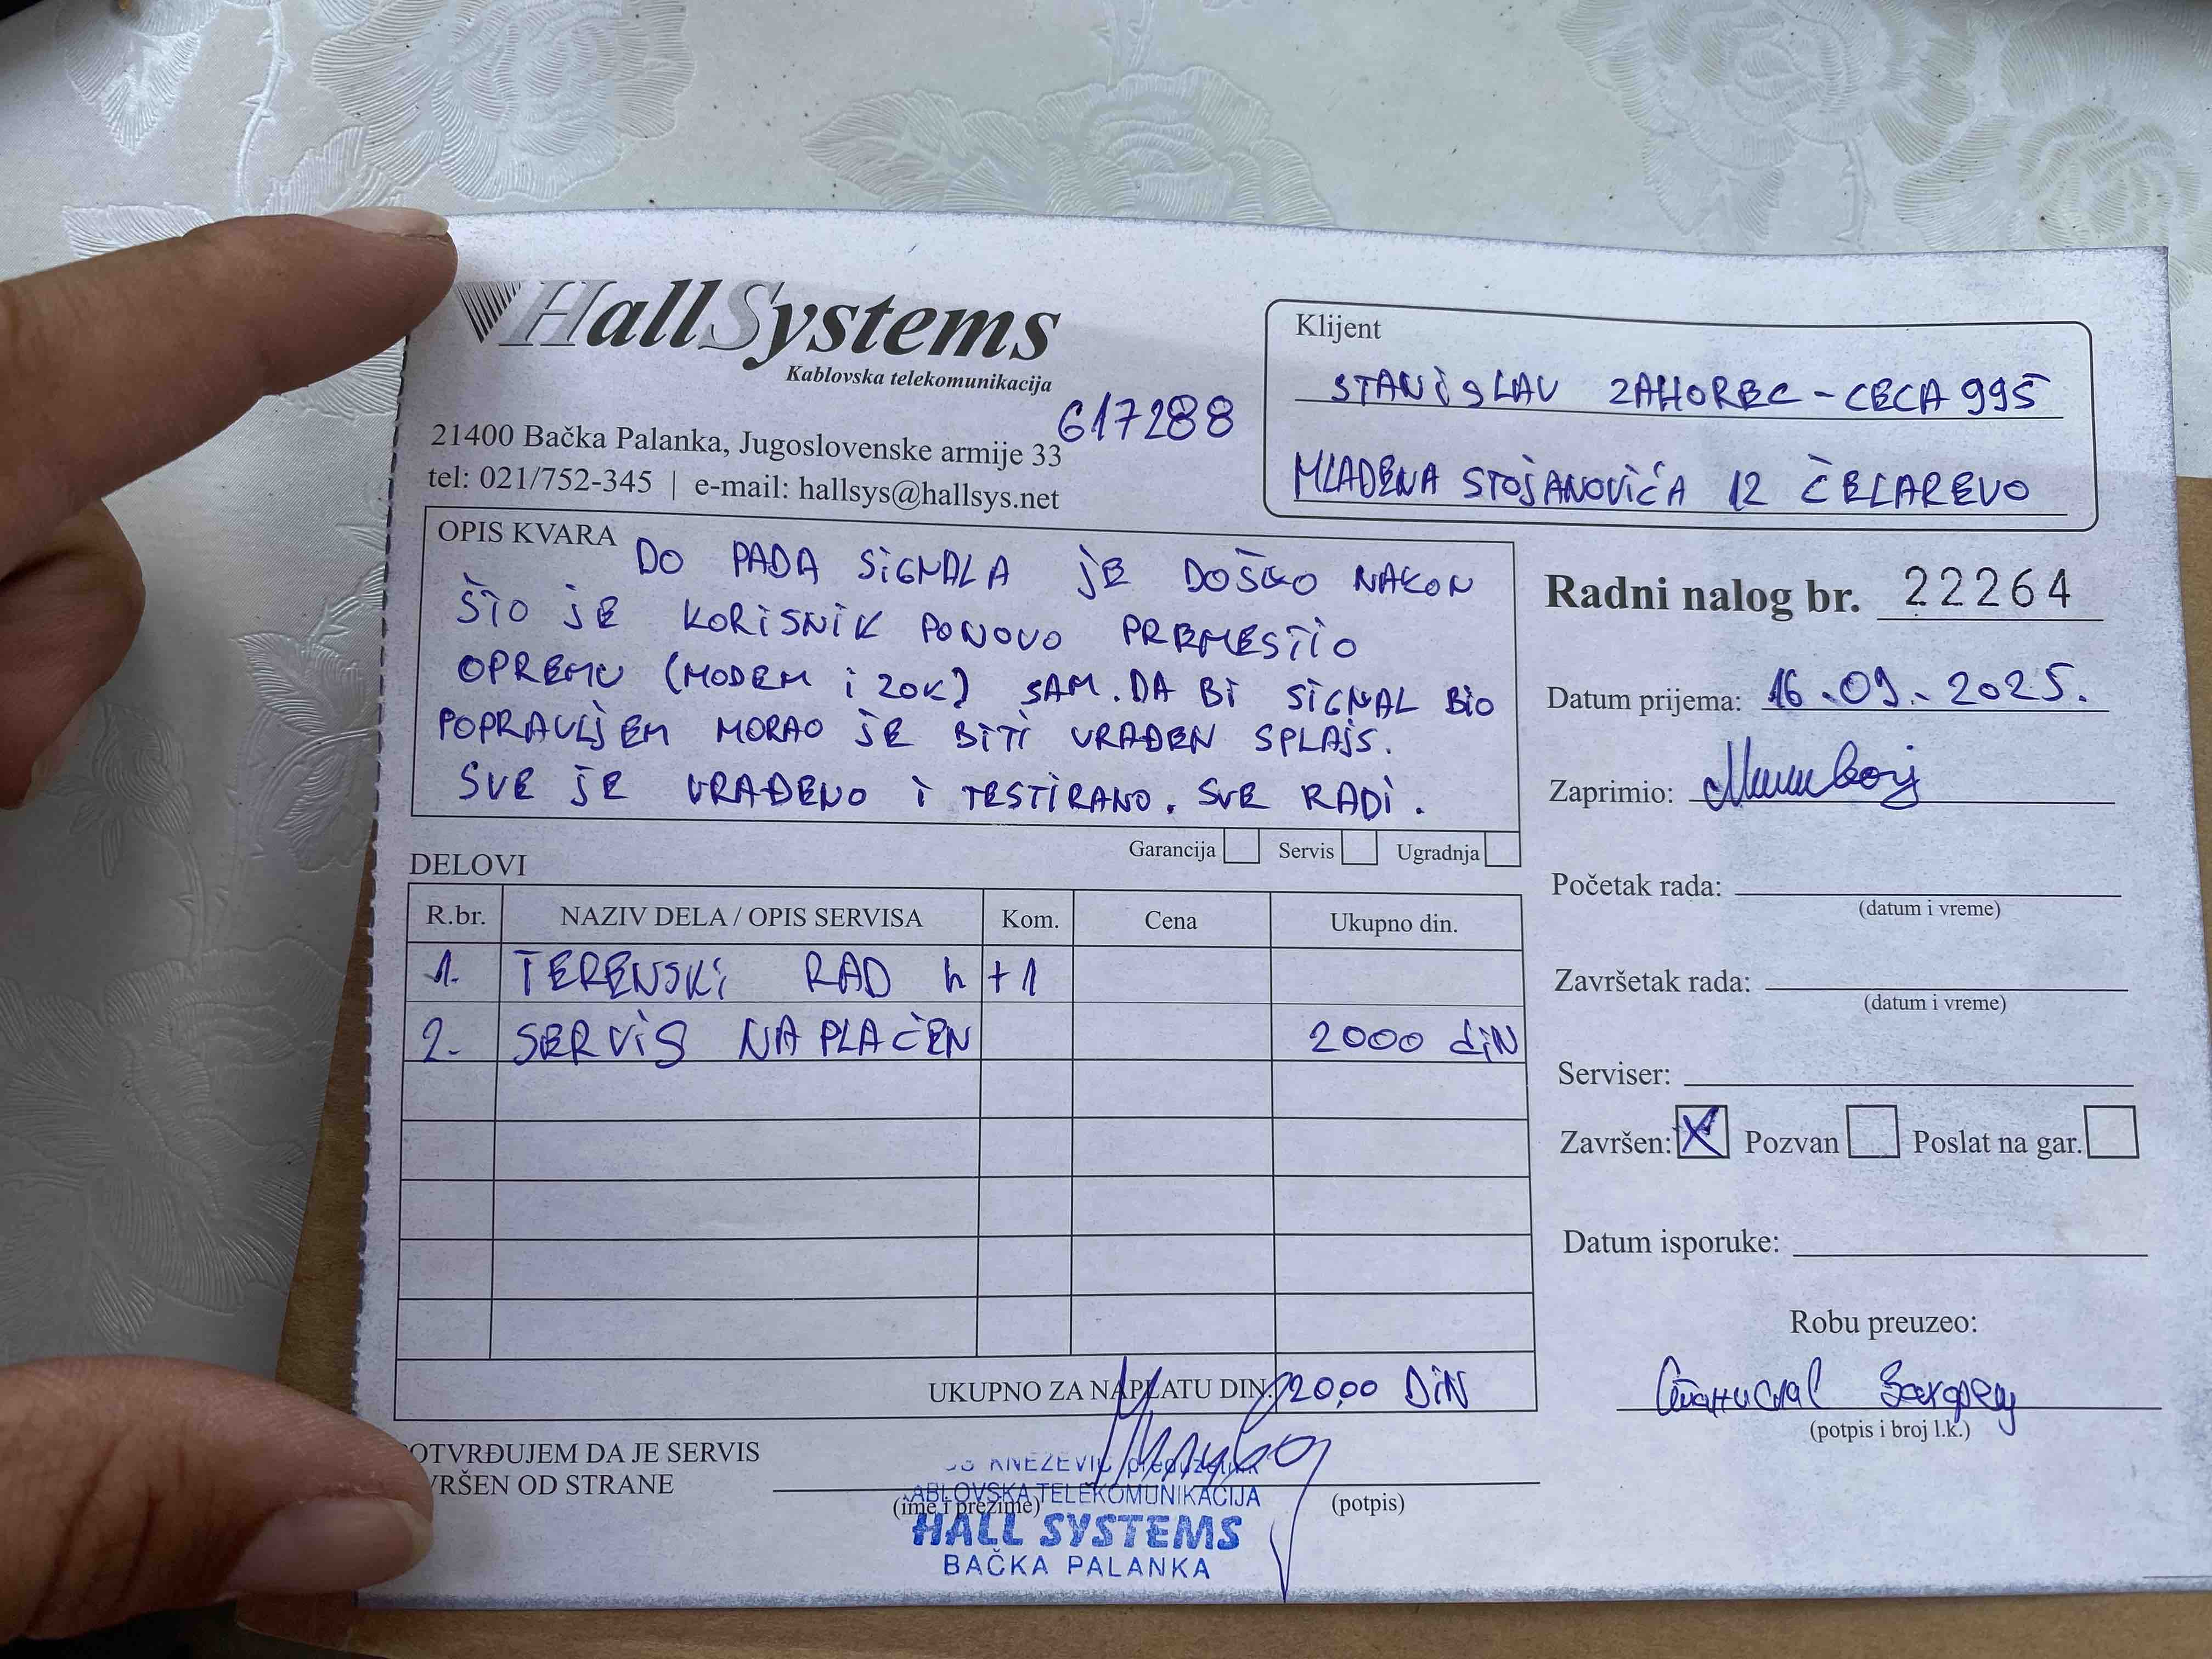 HallSystems
Kablovska telekomunikacija
617288
21400 Bačka Palanka, Jugoslovenske armije 33
tel: 021/752-345 | e-mail: hallsys@hallsys.net
Klijent
STANiSLAV ZAHOREC - CECA 995
MLADENA STOJANOVIĆA 12 ČELAREVO
OPIS KVARA
DO PADA SiGNALA JE DOŠLO NAKON
ŠTO JE KORiSNiK PONOVO PREMESTiO
OPREMU (MODEM i ZOK) SAM. DA Bi SiGNAL BiO
POPRAVLJEN MORAO JE BiTi URAĐEN SPLAJS.
SVE JE URAĐENO i TESTiRANO. SVE RADi.
Garancija Servis Ugradnja
Radni nalog br. 22264
Datum prijema: 16.09.2025.
Zaprimio:
Početak rada:
(datum i vreme)
Završetak rada:
(datum i vreme)
Serviser:
Završen: X Pozvan Poslat na gar.
Datum isporuke:
Robu preuzeo:
Станислав Захорец
(potpis i broj l.k.)
DELOVI
R.br. NAZIV DELA / OPIS SERVISA Kom. Cena Ukupno din.
1. TERENSKi RAD h +1
2. SERViS NAPLAĆEN 2000 diN
UKUPNO ZA NAPLATU DIN. 2000 DiN
OTVRĐUJEM DA JE SERVIS
VRŠEN OD STRANE
(ime i prezime)
(potpis)
KNEŽEVIĆ preduzetnik
ABLOVSKA TELEKOMUNIKACIJA
HALL SYSTEMS
BAČKA PALANKA